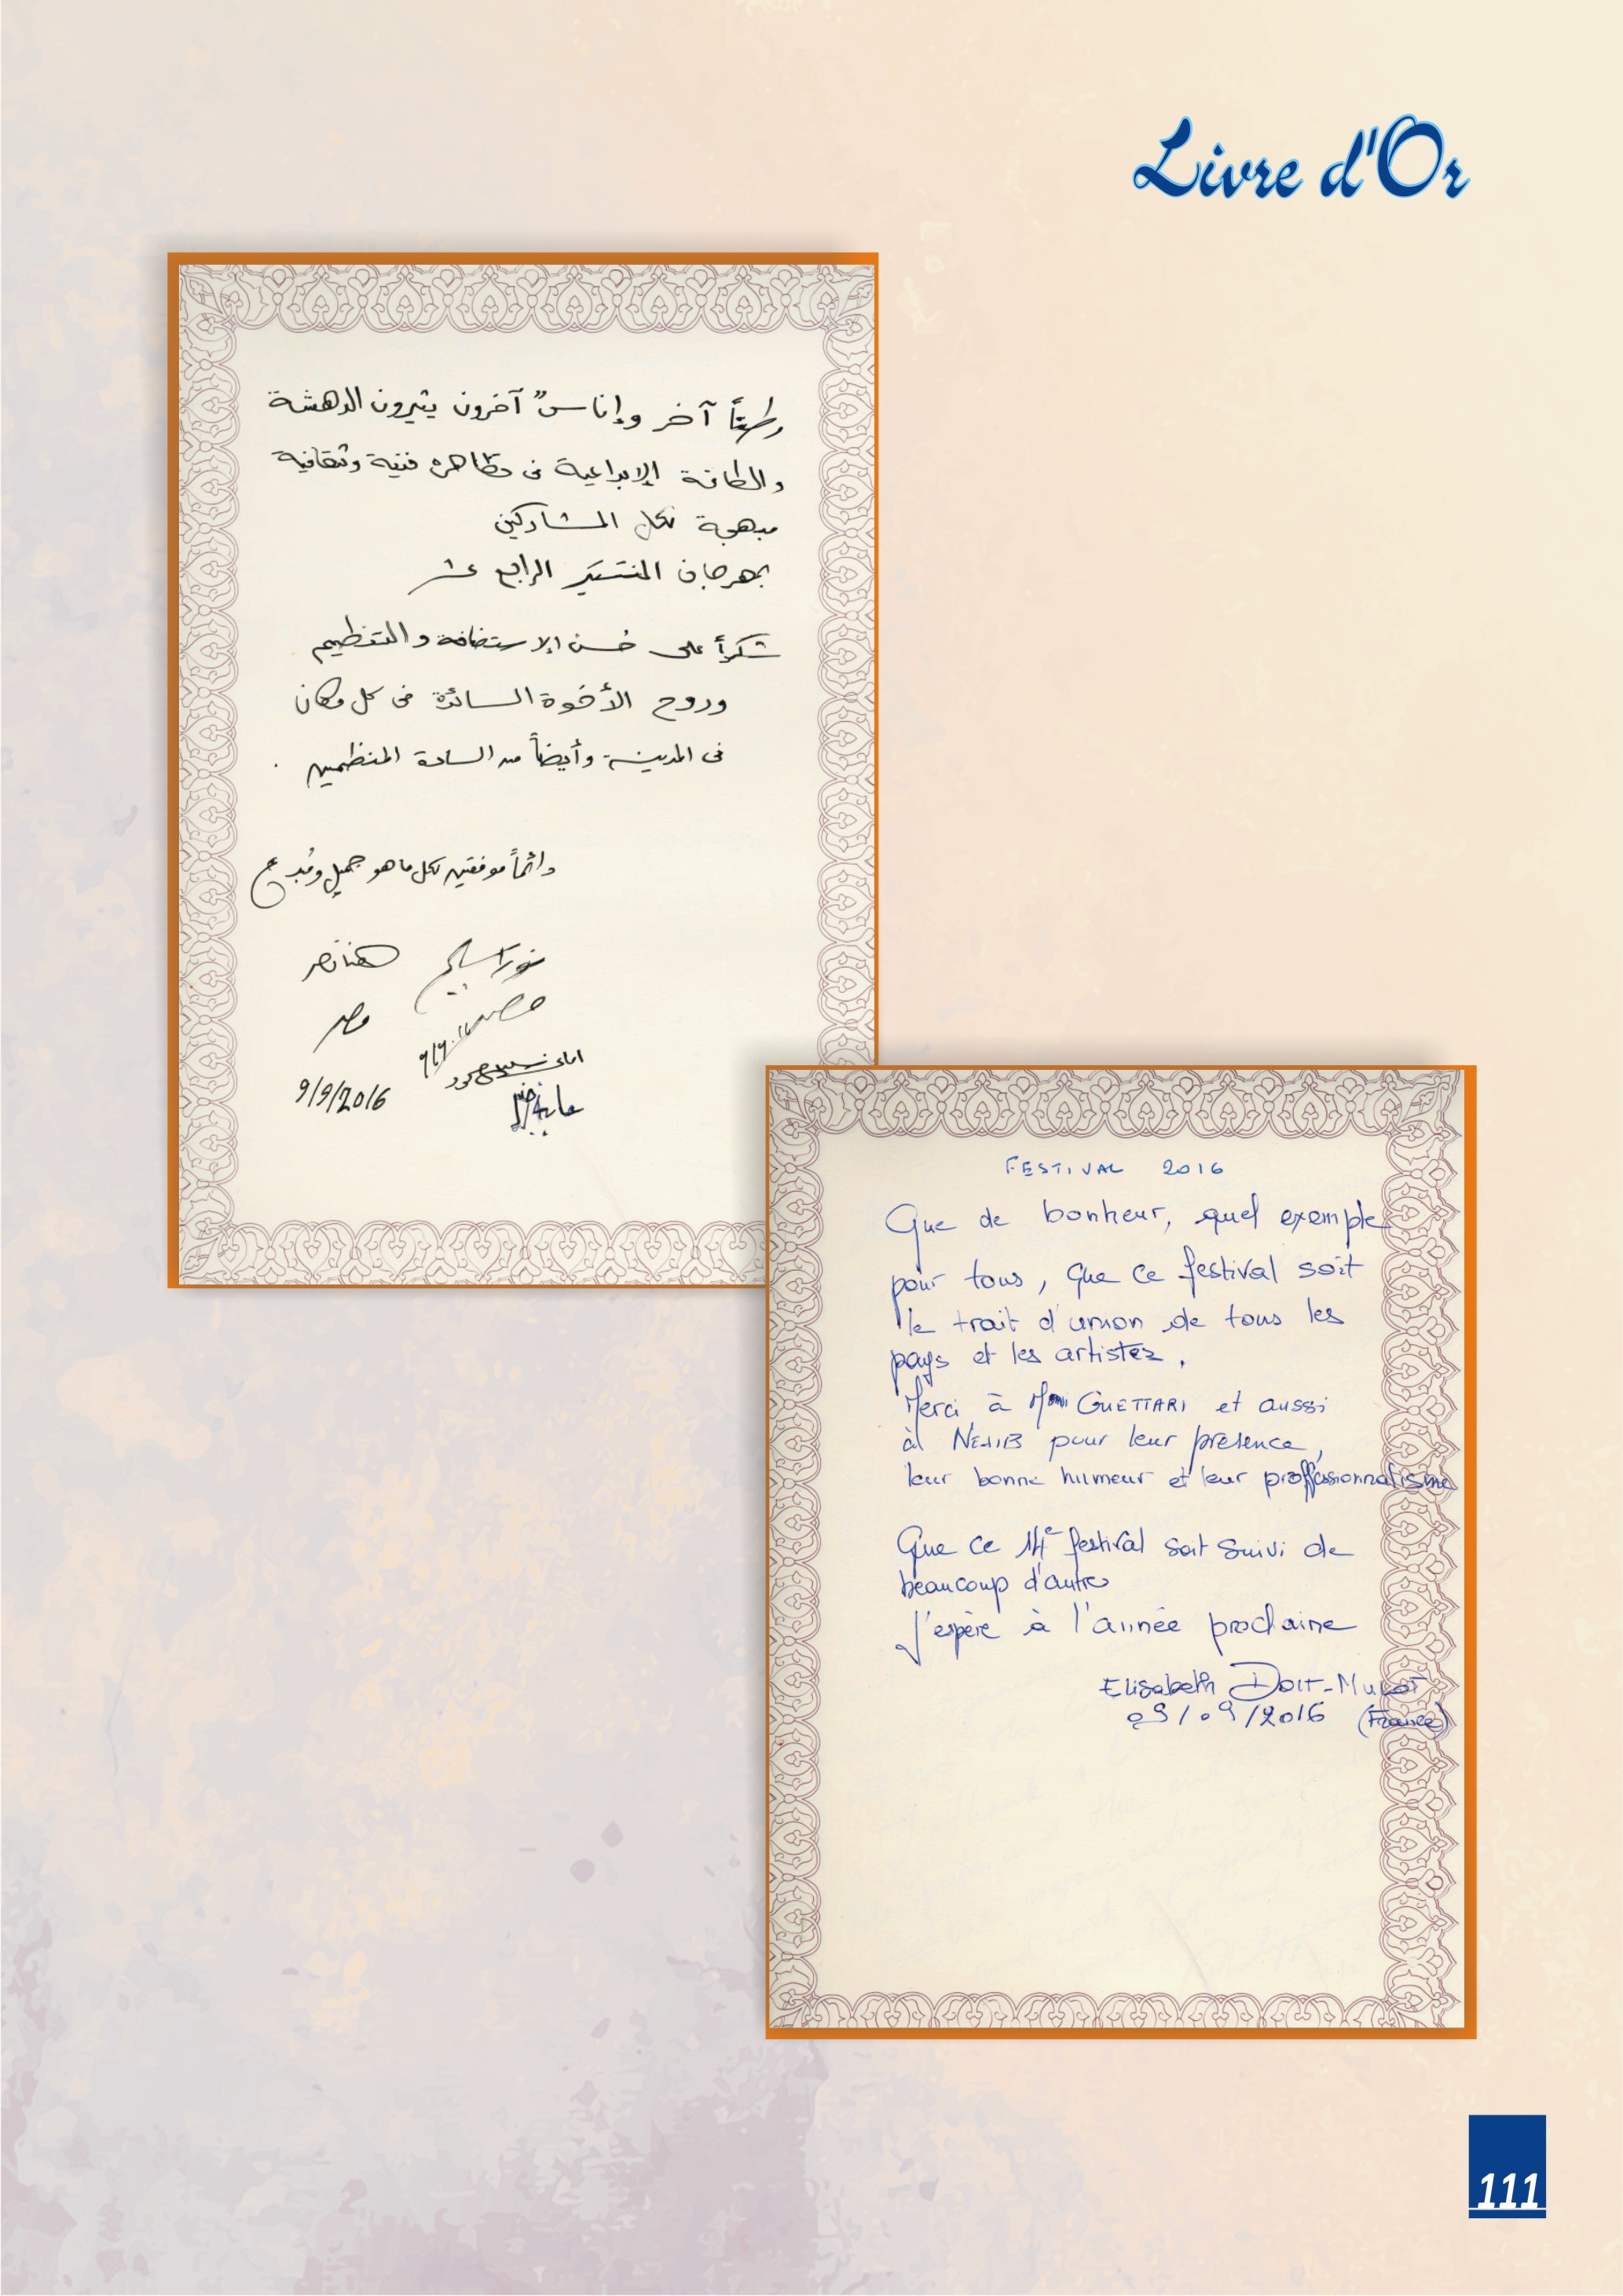 Livre d'Or
وطناً آخر وإناسٌ آخرون يثيرون الدهشة
والطاقة الإبداعية فى مظاهره فنية وثقافية
مبهجة لكل المشاركين
بمهرجان المنستير الرابع عشر
شكراً على حُسن الإستضافة والتنظيم
وروح الأخوة السائدة فى كل مكان
فى المدينة وأيضاً من السادة المنظمين .
دائماً موفقين لكل ما هو جميل ومُبدع
هنا نصر
مصر
مصر
9/9/2016
FESTIVAL 2016
Que de bonheur, quel exemple
pour tous, que ce festival soit
le trait d'union de tous les
pays et les artistes.
Merci à GUETTARI et aussi
à NEJIB pour leur présence,
leur bonne humeur et leur proffessionnalisme
Que ce 14e festival soit suivi de
beaucoup d'autres
J'espère à l'année prochaine
Elisabeth DOIT-Mulot
09/09/2016 (France)
111